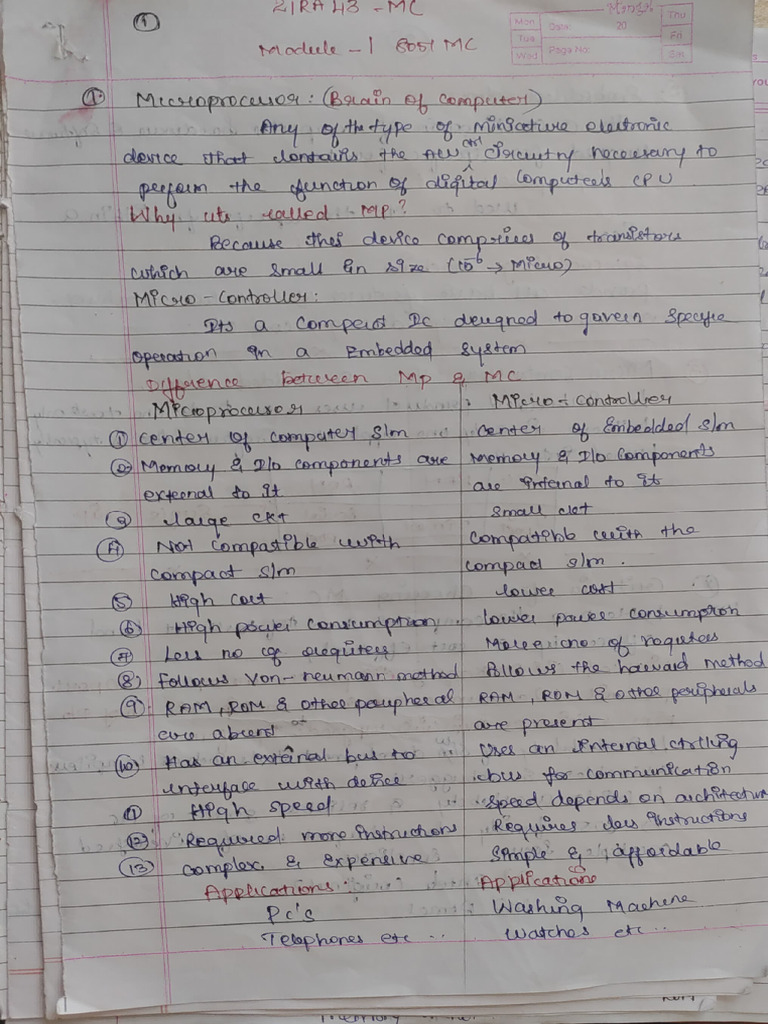 21RA43 - MC
1
Module - 1 8051 MC
Mon Tue Wed Date: 20 Page No: Thu Fri Sat
① Microprocessor: (Brain of Computer)
Any of the type of miniature electronic
device that contains the ALU ctrl circuitry necessary to
perform the function of digital computers CPU
Why its called MP?
Because this device comprises of transistors
which are small in size (10⁻⁶ → Micro)
Micro-Controller:
Its a Compact IC designed to govern specific
operation in a Embedded System
Difference between Mp & MC
Microprocessor Micro-Controller
① center of computer S/m center of Embedded S/m
② Memory & I/o components are Memory & I/o Components
external to it are internal to it
③ large ckt small ckt
④ Not compatible with compatible with the
compact s/m compact s/m.
⑤ High cost lower cost
⑥ High power consumption lower power consumption
⑦ Less no of registers More no of registers
⑧ Follows Von-neumann method follows the harvard method
⑨ RAM, ROM & other peripheral RAM, ROM & other peripherals
are absent are present
⑩ Has an external bus to Uses an internal ctrlling
interface with device bus for communication
⑪ High speed Speed depends on architecture
⑫ Required more instructions Requires less instructions
⑬ complex & expensive Simple & affordable
Applications: Applications
Pc's Washing Machine
Telephones etc .. Watches etc ..